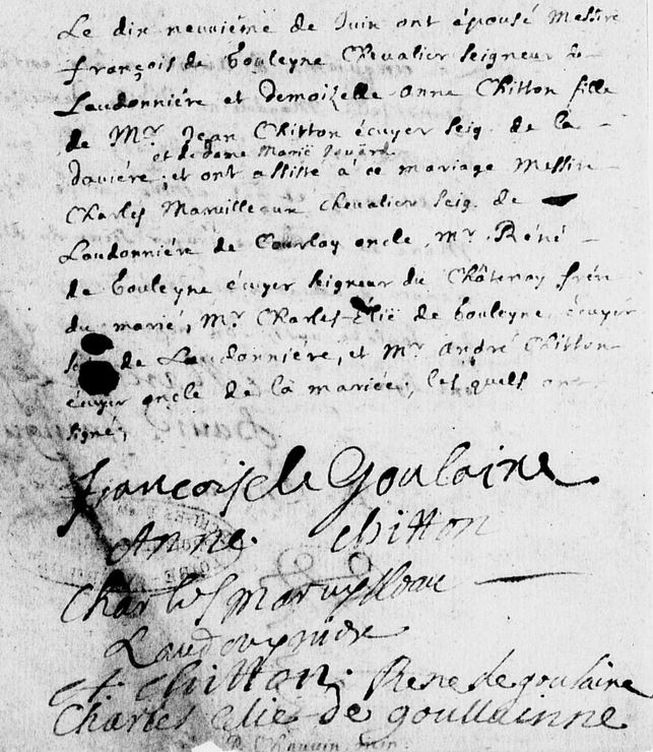 Le dix neuuiéme de Juin ont épousé Messire
François de Gouleyne Chevalier Seigneur de
Laudonniére et Demoizelle Anne Chitton fille
de Mr. Jean Chitton écuyer Seig. de la
et de Dame Marie
; et ont assisté à ce mariage Messire
Charles Chevalier Seig. de
Laudonniére de oncle, Mr. Réné
de Gouleyne écuyer seigneur du Châtenay frére
du marié, Mr. Charles-Élië de Gouleyne, écuyer
de Laudonniere, et Mr. André Chitton
écuyer oncle de la mariée; les quels ont
signé;
françois de Goulaine
Anne. Chitton
Charles
Laudouyniere
chitton. Rene de goulaine
Charles elie de goullainne